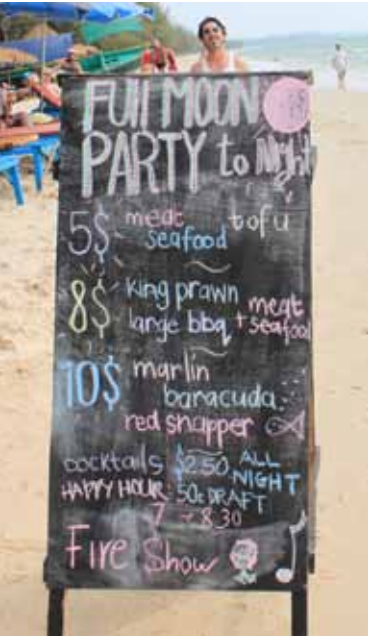 FUll MOON
PARTY to Night
5$ meat tofu
seafood
8$ king prawn
large bbq + meat
seafood
10$ marlin
baracuda
red snapper
cocktails $2.50 ALL
NIGHT
HAPPY HOUR 50c DRAFT
7 - 8.30
Fire Show